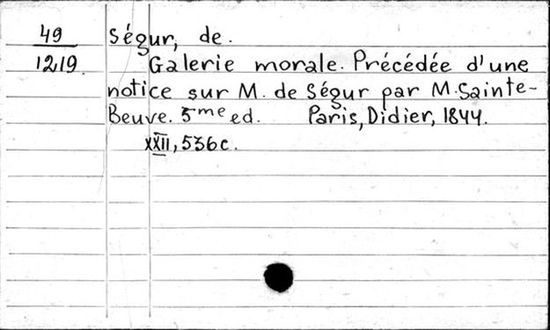 49 Ségur, de.
1219. Galerie morale. Précédée d'une
notice sur M. de Ségur par M. Sainte-
Beuve. 5me ed. Paris, Didier, 1844.
XXII, 536c.